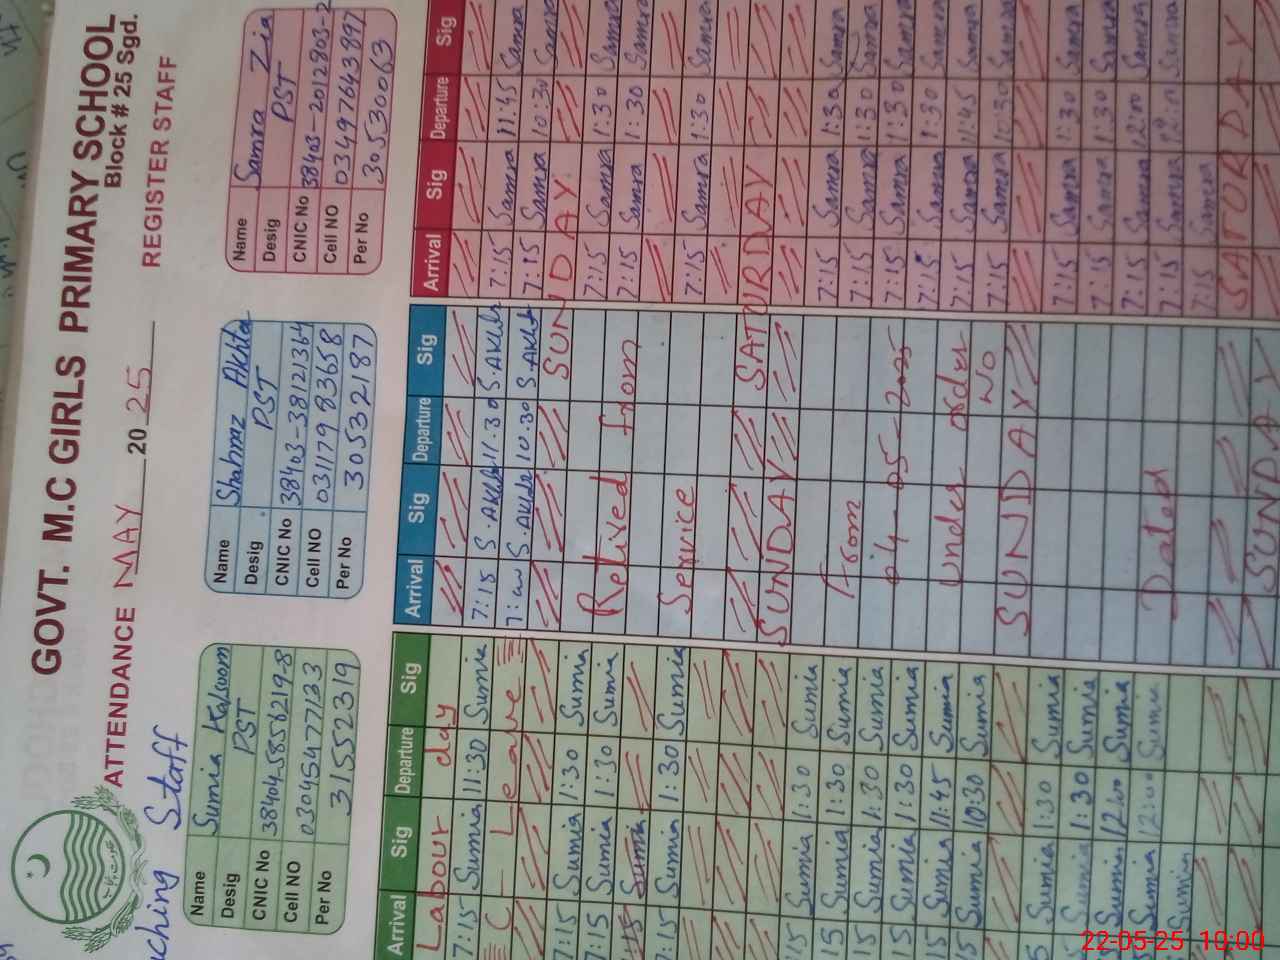 GOVT. M.C GIRLS PRIMARY SCHOOL
Block # 25 Sgd.
ATTENDANCE MAY 2025 REGISTER STAFF
Staff
Name Sumia Kalsoom
Desig PST
CNIC No 38404-5856219-8
Cell NO 03045477133
Per No 31552319
Name Shahnaz Akhtar
Desig PST
CNIC No 38403-3812136-4
Cell NO 03117983658
Per No 30532187
Name Samra Zia
Desig PST
CNIC No 38403-2012803-2
Cell NO 03497643897
Per No 30530063
Arrival Sig Departure Sig Arrival Sig Departure Sig Arrival Sig Departure Sig
Labour day
7:15 Sumia 11:30 Sumia 7:15 S.Akhtr 11.30 S.Akhtr 7:15 Samra 11:45 Samra
C Leave S.Akhtr 10.30 S.Akhtr 7:15 Samra 10:30 Samra
SUNDAY
7:15 Sumia 1:30 Sumia 7:15 Samra 1:30 Samra
7:15 Sumia 1:30 Sumia Retired from 7:15 Samra 1:30 Samra
:15 Sumia
7:15 Sumia 1:30 Sumia Service 7:15 Samra 1:30 Samra
SATURDAY
SUNDAY
15 Sumia 1:30 Sumia 7:15 Samra 1:30 Samra
15 Sumia 1:30 Sumia From 7:15 Samra 1:30 Samra
15 Sumia 1:30 Sumia 04-05-2025 7:15 Samra 1:30 Samra
15 Sumia 1:30 Sumia 7:15 Samra 1:30 Samra
15 Sumia 11:45 Sumia Under order 7:15 Samra 11:45 Samra
15 Sumia 10:30 Sumia No 7:15 Samra 10:30 Samra
SUNDAY
Sumia 1:30 Sumia 7:15 Samra 1:30 Samra
Sumia 1:30 Sumia 7:15 Samra 1:30 Samra
Sumia 12:00 Sumia 7:15 Samra 12:00 Samra
Sumia 12:00 Sumia Dated 7:15 Samra 12:00 Samra
Sumia 7:15 Samra
SATURDAY
SUNDAY
22-05-25 10:00